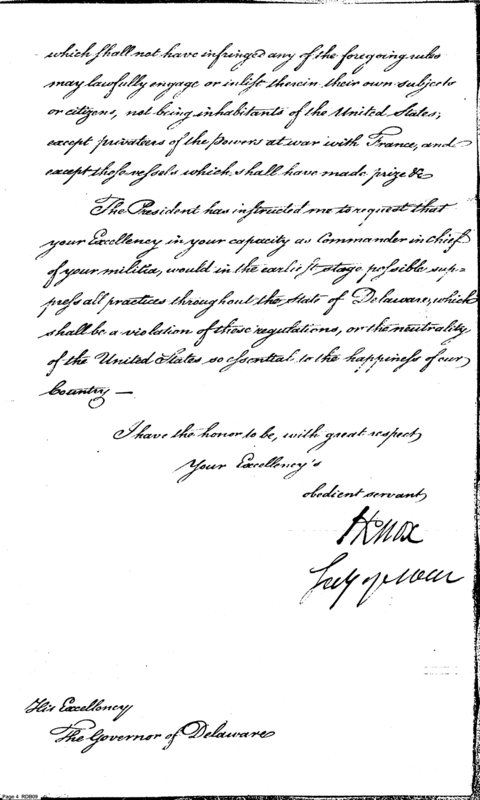 which shall not have infringed any of the foregoing rules
may lawfully engage or inlist therein their own subjects
or citizens, not being inhabitants of the United States;
except privateers of the Powers at war with France, and
except those vessels which shall have made prize &c
The President has instructed me to request that
your Excellency in your capacity as Commander in Chief
of your militia, would in the earliest stage possible sup=
press all practices throughout the State of Delaware, which
shall be a violation of these regulations, or the neutrality
of the United States so essential to the happiness of our
Country —
I have the honor to be, with great respect
Your Excellency's
obedient servant
HKnox
Secy of War
His Excellency
The Governor of Delaware
Page 4 RDB09